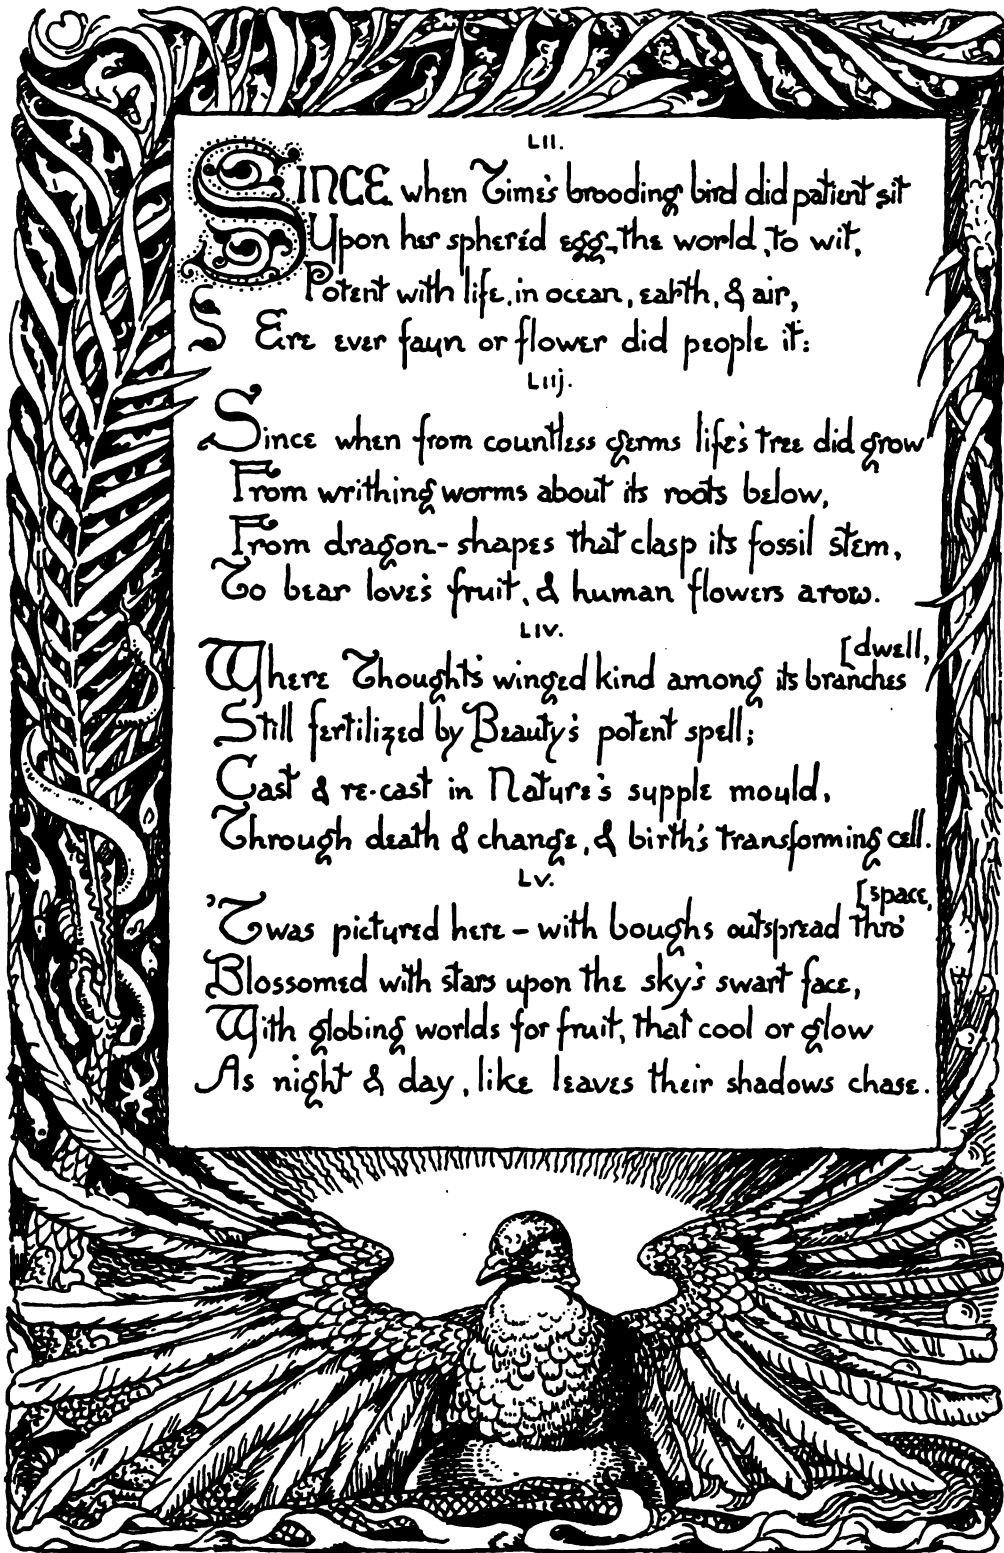 LII.
SINCE when Time's brooding bird did patient sit
Upon her spheréd egg, the world, to wit,
Potent with life, in ocean, earth, & air,
Ere ever faun or flower did people it:
LIIJ.
Since when from countless germs life's tree did grow
From writhing worms about its roots below,
From dragon-shapes that clasp its fossil stem,
To bear love's fruit, & human flowers arow.
LIV.
Where Thought's winged kind among its branches [dwell,
Still fertilized by Beauty's potent spell;
Cast & re-cast in Nature's supple mould,
Through death & change, & birth's transforming cell.
LV.
'Twas pictured here – with boughs outspread thro' [space,
Blossomed with stars upon the sky's swart face,
With globing worlds for fruit, that cool or glow
As night & day, like leaves their shadows chase.